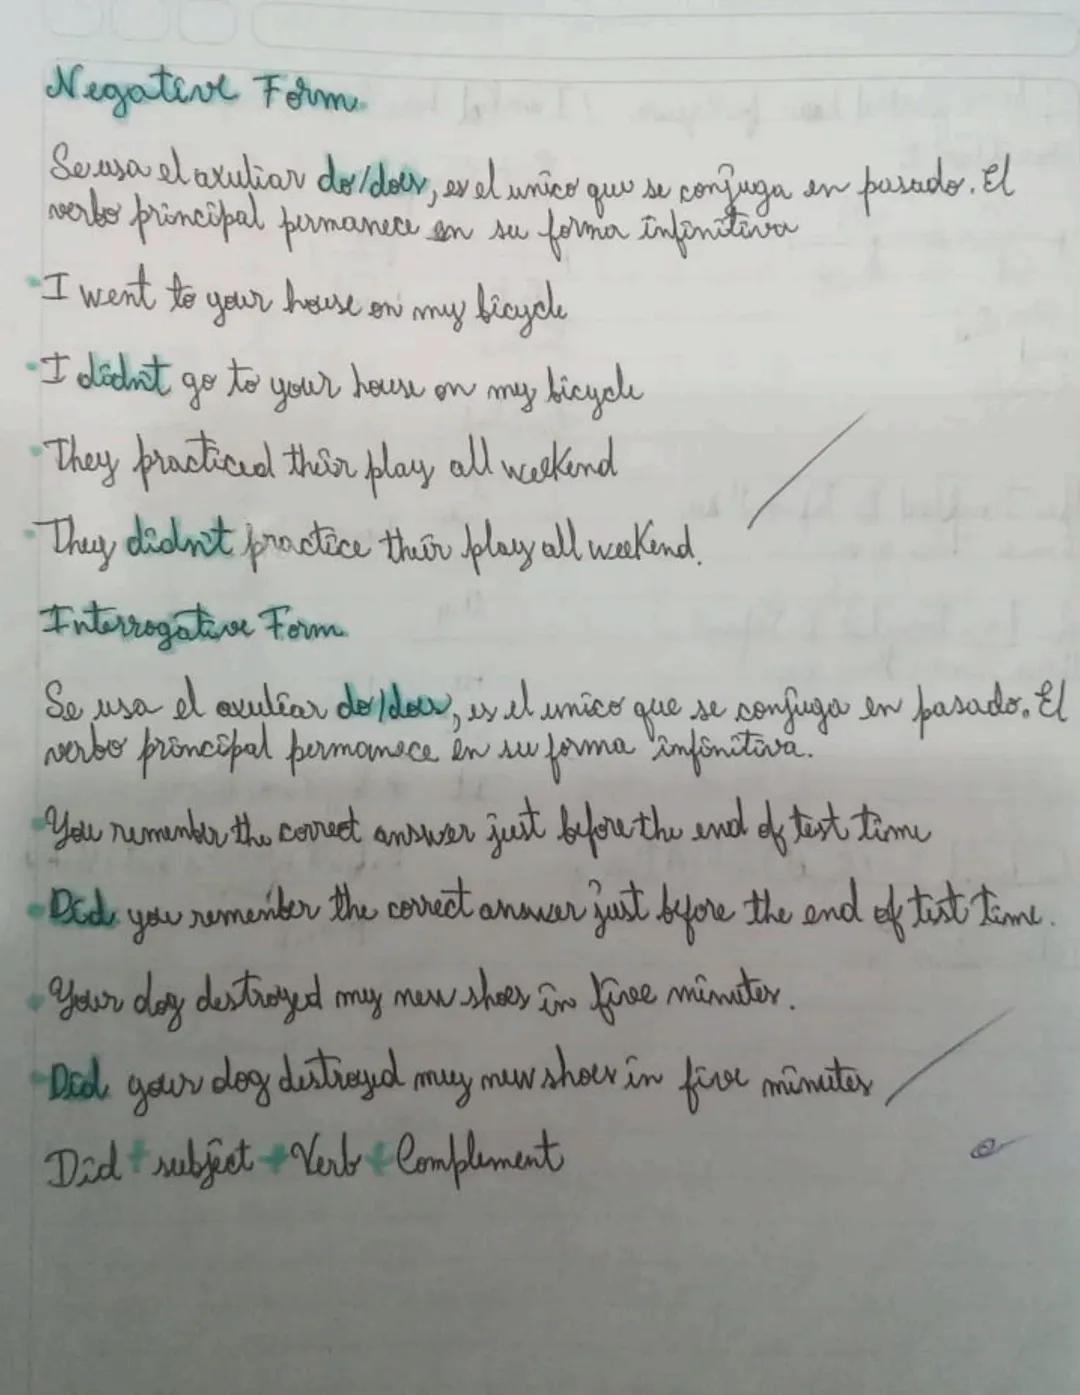 Negative Form.
Se usa el axuliar do/does, es el unico que se conjuga en pasado. El
verbo principal permanece en su forma infinitiva
I went to your house on my bicycle
I didn't go to your house on my bicycle
They practiced their play all weekend
They didn't practice their play all weekend.
Interrogative Form.
Se usa el axuliar do/does, es el unico que se conjuga en pasado. El
verbo principal permanece en su forma infinitiva.
You remember the correct answer just before the end of test time
Did you remember the correct answer just before the end of test time.
Your dog destroyed my new shoes in five minutes.
Did your dog destroyed my new shoes in five minutes
Did + subject + Verb + Complement